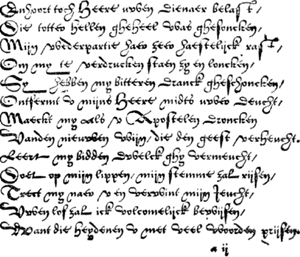 Verhoort toch Heere uwen Dienaer belast /
Die totter hellen gheheel was ghesoncken /
Mijn wederpartie haer zeer haestelijck rast /
Om my te verdrucken staen zy en loncken /
Sy hebben my bitteren dranck gheschoncken /
Ontfermt u mijns Heere midts uwer deucht /
Maeckt my als u Apostelen droncken
Vanden nieuwen wijn / die den geest verheucht.
Leert my bidden dwelck ghy vermeucht /
Doet op mijn lippen / mijn stemme sal rijsen /
Trect my naer u en verwint mijn jeucht /
Uwen lof sal ick volcomelijck bewijsen /
Want die heydenen u met veel woorden prijsen.
a ij